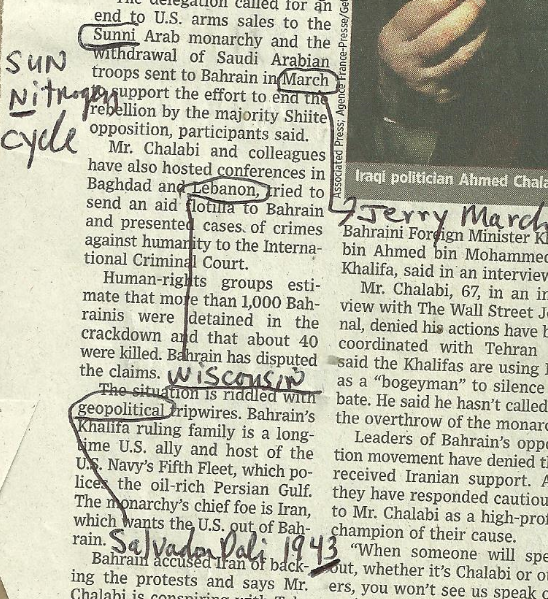 The delegation called for an
end to U.S. arms sales to the
Sunni Arab monarchy and the
withdrawal of Saudi Arabian
troops sent to Bahrain in March
to support the effort to end the
rebellion by the majority Shiite
opposition, participants said.
Mr. Chalabi and colleagues
have also hosted conferences in
Baghdad and Lebanon, tried to
send an aid flotilla to Bahrain
and presented cases of crimes
against humanity to the Interna-
tional Criminal Court.
Human-rights groups esti-
mate that more than 1,000 Bah-
rainis were detained in the
crackdown and that about 40
were killed. Bahrain has disputed
the claims.
The situation is riddled with
geopolitical tripwires. Bahrain's
Khalifa ruling family is a long-
time U.S. ally and host of the
U.S. Navy's Fifth Fleet, which po-
lices the oil-rich Persian Gulf.
The monarchy's chief foe is Iran,
which wants the U.S. out of Bah-
rain.
Bahrain accused Iran of back-
ing the protests and says Mr.
Chalabi is conspiring with
SUN
Nitrogen
cycle
WISCONSIN
Salvador Dali 1943
Associated Press; Agence France-Presse/Get
Iraqi politician Ahmed Chala
Jerry March
Bahraini Foreign Minister K
bin Ahmed bin Mohammed
Khalifa, said in an interview
Mr. Chalabi, 67, in an in
view with The Wall Street Jo
nal, denied his actions have b
coordinated with Tehran
said the Khalifas are using
as a "bogeyman" to silence
bate. He said he hasn't called
the overthrow of the monarc
Leaders of Bahrain's oppo
tion movement have denied th
received Iranian support. A
they have responded cautiou
to Mr. Chalabi as a high-prof
champion of their cause.
"When someone will spe
out, whether it's Chalabi or o
ers, you won't see us speak o